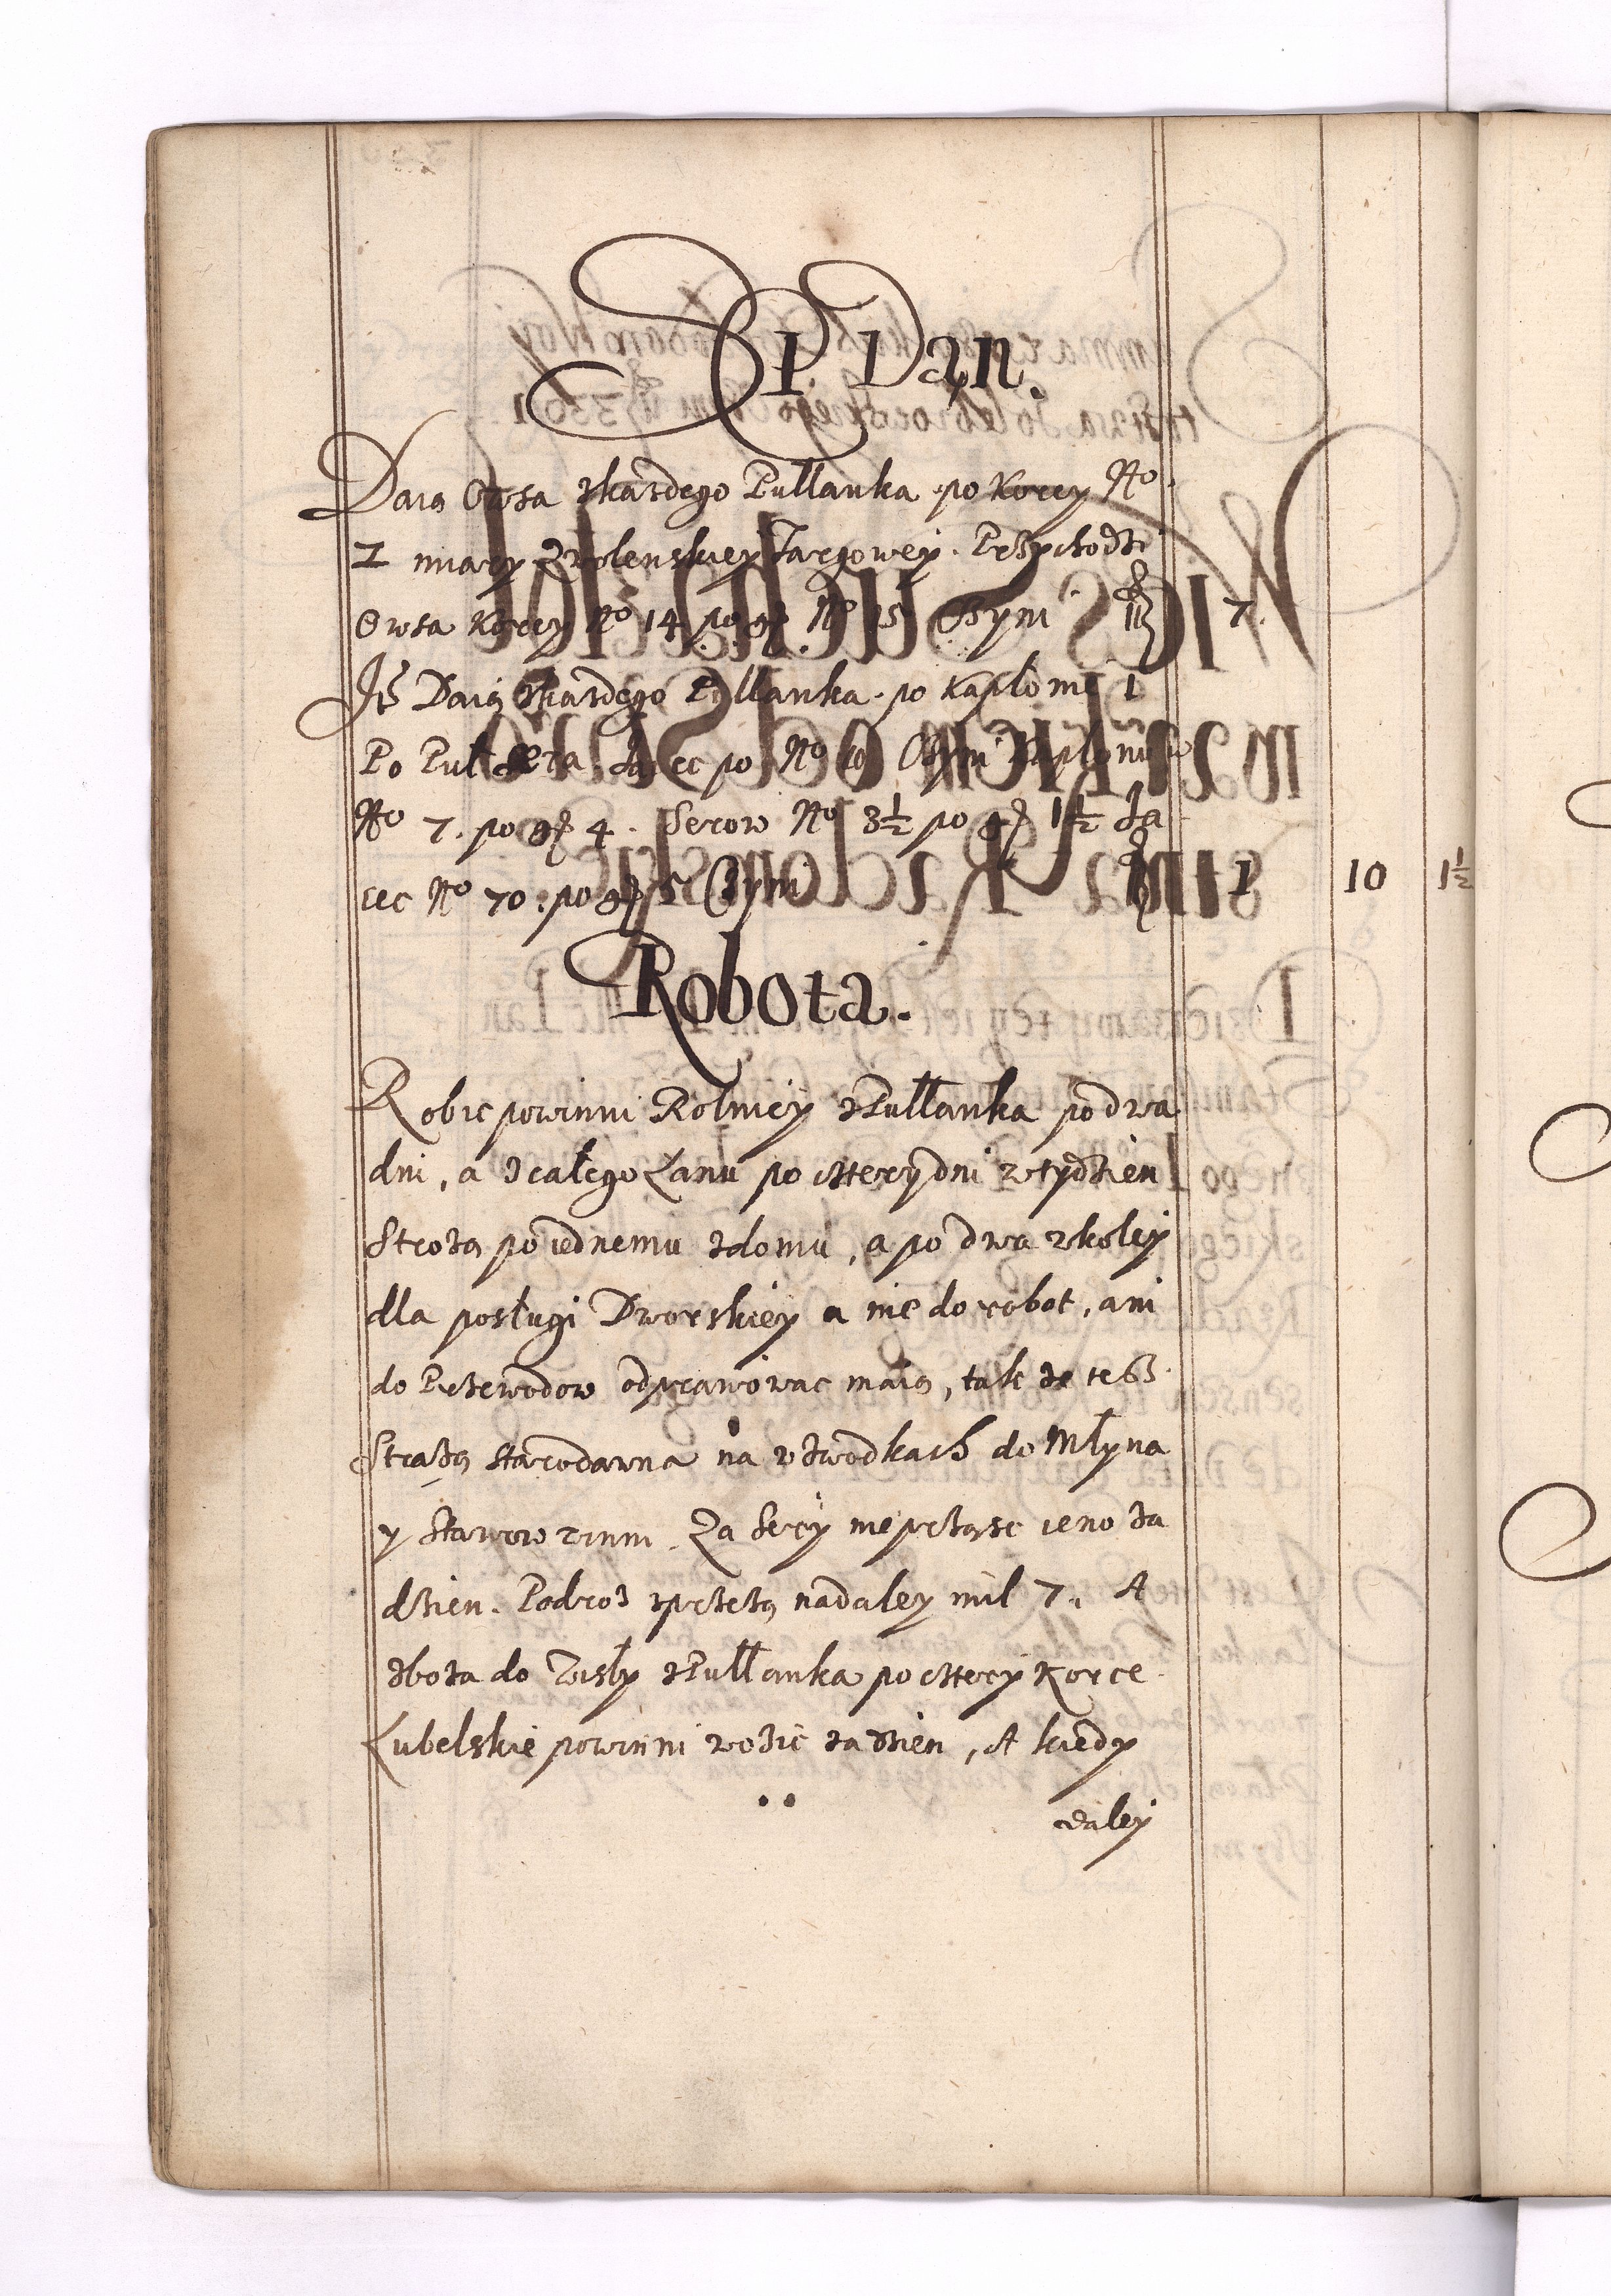 SP. Dan.
Daią Owsa zkasdego Pullanka po Korcy No
1 miary Zwolenskiey Targowey. Przychodzi
Owsa Korcy No 14 po gr No 15 Czyni fl 7.
It Daią zkasdego Pullanka po Kapłonie 1
Po Puł Sera Jaiec po No 10 Czyni Kapłonow
No 7. po gr 4. Serow No 3½ po gr 1½ Ja
iec No 70. po Czyni fl 1 10 1½
Robota.
Robic powinni Rolnicy zPułłanka po dwa
dni, a zcałego Łanu po cztery dni w tydzien
Strożą po iednemu zdomu, a po dwa zkoley
dla posługi Dworskiey a nie do robot, ani
do Przewodow odprawowac maią, takze tesz
Strażą starodawna na wzwodkach do Młyna
y Stawow Za Sery nie prząsc ieno za
dzien. Podroz nadaley mil 7. A
zboza do Wisły zPułłanka po cztery Korce
Lubelskie powinni wozic za dzien, A kiedy
daley